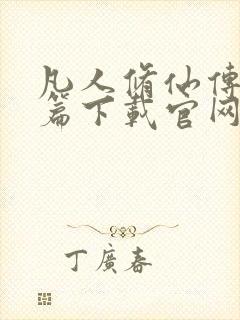 凡人脩仙傳
篇下載官网
丁廣春